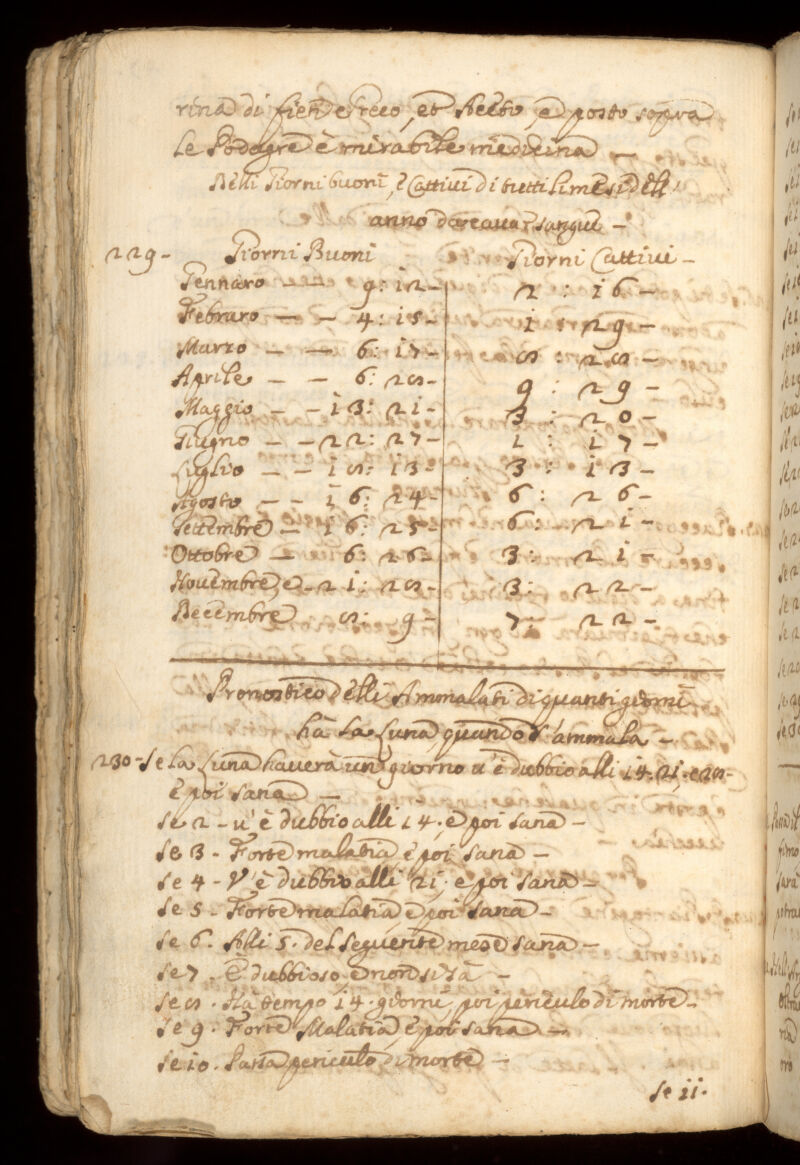 rina di fien e Greco, et Aceto, e posto sopra
le Podagre è mirabile medicina —
Delli Giorni buoni, è Cattiui di tutti li mesi dell'
anno da cauar sangue —
229 - Giorni Buoni Giorni Cattiui —
Gennaro 9: 12 - 2 : 16 —
Febraro — — 4: 15 - 1 : 29 —
Marzo — — 6: 17 - 8 : 28 —
Aprile — — 6: 28 - 9 : 29 —
Maggio — — 13: 21 - 3 : 20 —
Giugno — — 22: 27 - 1 : 17 —
Luglio — — 18: 13 - 3 : 13 —
Agosto — — 16: 24 - 6 : 26 —
Settembre — 16: 25 - 6: 21 —
Ottobre — 6: 26 - 3: 21 —
Nouembre, e - 21: 28 - 3: 22 —
Decembre 8: 9 - 7: 22 —
Pronostico delli Ammalati di quanti giorni
hà la Luna, quando s'ammala —
230 - Se la Luna hauerà un giorno u'è dubbio alli 14. 21, e 28 -
è poi sana —
se 2 - u'è dubbio alli 14. e poi sana —
se 3 - Forte malatia, è poi sana —
se 4 - V'è dubbio alli 21. e poi sana —
se 5 - Forte malatia, e poi sana —
se 6 . Alli 5. del seguente mese sana —
se 7 . È dubbioso, e non si sà —
se 8 . Hà tempo 14. giorni, poi periculo di morte -
se 9 . Forte Malatia, è poi sana —
se 10 . Sarà periculo di morte —
se 11.